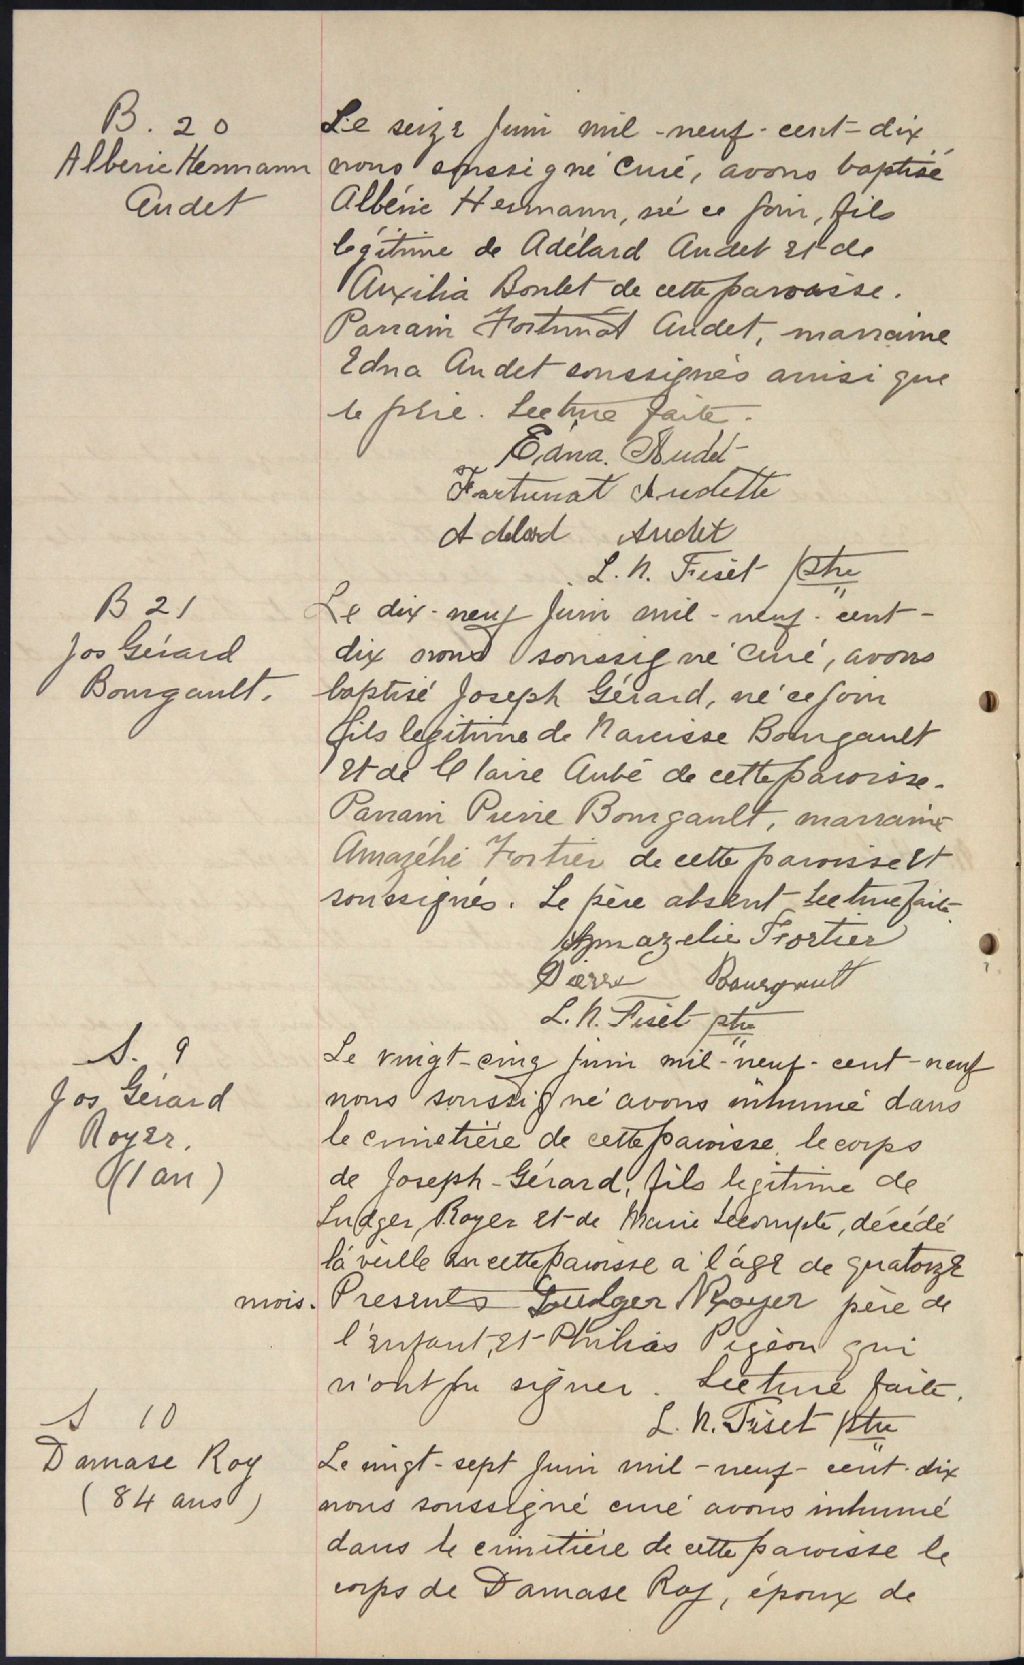 B. 20
Albéric Hermann
Audet
Le seize Juin mil-neuf-cent-dix
nous soussigné Curé, avons baptisé
Albéric Hermann, né ce jour, fils
légitime de Adélard Audet et de
Auxilia Boulet de cette paroisse.
Parrain Fortunat Audet, marraine
Edna Audet soussignés ainsi que
le père. Lecture faite.
Edna. Audet
Fortunat Audette
Adelard Audet
L. N. Fiset ptre
B 21
Jos Gérard
Bourgault.
Le dix-neuf Juin mil-neuf-cent-
dix nous soussigné Curé, avons
baptisé Joseph Gérard, né ce jour
fils legitime de Narcisse Bourgault
et de Claire Aubé de cette paroisse.
Parrain Pierre Bourgault, marraine
Amazélie Fortier de cette paroisse et
soussignés. Le père absent Lecture faite.
Amazelie Fortier
Pierre Bourgault
L. N. Fiset ptre
S. 9
Jos Gérard
Royer.
(1 an)
Le vingt-cinq Juin mil-neuf-cent-neuf
nous soussigné avons inhumé dans
le cimetière de cette paroisse le corps
de Joseph-Gérard, fils legitime de
Ludger Royer et de Marie Lecompte, décédé
la veille en cette paroisse a l'âge de quatorze
mois. Presents Ludger Royer père de
l'enfant, et Philias Pigeon qui
n'ont pu signer. Lecture faite.
L. N. Fiset ptre
S 10
Damase Roy
(84 ans)
Le vingt-sept Juin mil-neuf-cent-dix
nous soussigné curé avons inhumé
dans le cimitière de cette paroisse le
corps de Damase Roy, époux de